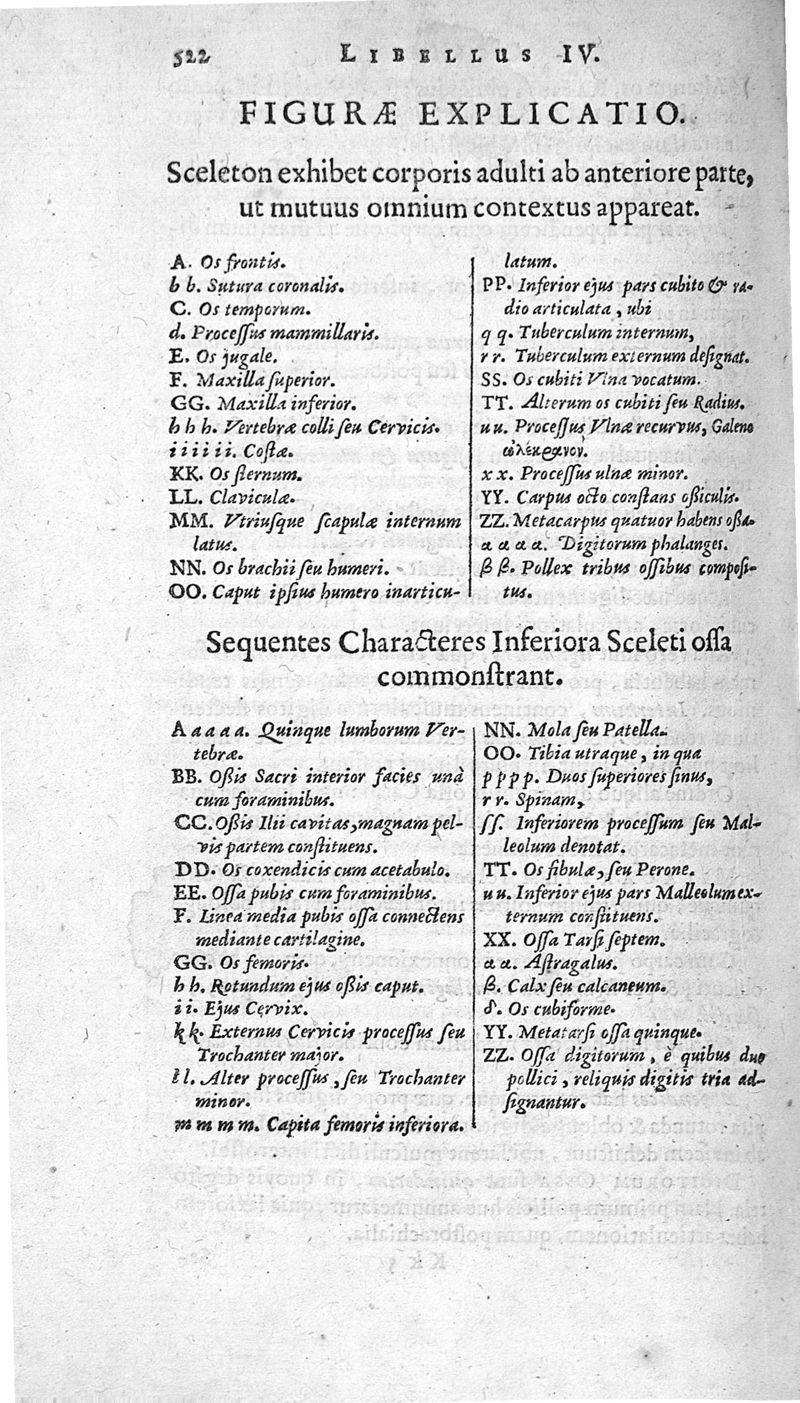 522 LIBELLUS IV.
FIGURÆ EXPLICATIO.
Sceleton exhibet corporis adulti ab anteriore parte,
ut mutuus omnium contextus appareat.
A. Os frontis.
b b. Sutura coronalis.
C. Os temporum.
d. Proceſſus mammillaris.
E. Os jugale.
F. Maxilla ſuperior.
GG. Maxilla inferior.
h h h. Vertebræ colli ſeu Cervicis.
i i i i i i. Coſtæ.
KK. Os ſternum.
LL. Claviculæ.
MM. Vtriuſque ſcapulæ internum
latus.
NN. Os brachii ſeu humeri.
OO. Caput ipſius humero inarticu-
latum.
PP. Inferior ejus pars cubito & ra-
dio articulata, ubi
q q. Tuberculum internum,
r r. Tuberculum externum deſignat.
SS. Os cubiti Vlna vocatum.
TT. Alterum os cubiti ſeu Radius.
uu. Proceſſus Vlnæ recurvus, Galeno
ὠλέκρανον.
x x. Proceſſus ulnæ minor.
YY. Carpus octo conſtans oßiculis.
ZZ. Metacarpus quatuor habens oßa.
α α α α. Digitorum phalanges.
β β. Pollex tribus oſſibus compoſi-
tus.
Sequentes Characteres Inferiora Sceleti oſſa
commonſtrant.
A a a a a. Quinque lumborum Ver-
tebræ.
BB. Oßis Sacri interior facies unà
cum foraminibus.
CC. Oßis Ilii cavitas, magnam pel-
vis partem conſtituens.
DD. Os coxendicis cum acetabulo.
EE. Oſſa pubis cum foraminibus.
F. Linea media pubis oſſa connectens
mediante cartilagine.
GG. Os femoris.
h h. Rotundum ejus oßis caput.
i i. Ejus Cervix.
k k. Externus Cervicis proceſſus ſeu
Trochanter major.
l l. Alter proceſſus, ſeu Trochanter
minor.
m m m m. Capita femoris inferiora.
NN. Mola ſeu Patella.
OO. Tibia utraque, in qua
p p p p. Duos ſuperiores ſinus,
r r. Spinam,
ſſ. Inferiorem proceſſum ſeu Mal-
leolum denotat.
TT. Os fibulæ, ſeu Perone.
uu. Inferior ejus pars Malleolum ex-
ternum conſtituens.
XX. Oſſa Tarſi ſeptem.
α α. Aſtragalus.
β. Calx ſeu calcaneum.
δ. Os cubiforme.
YY. Metatarſi oſſa quinque.
ZZ. Oſſa digitorum, è quibus duo
pollici, reliquis digitis tria ad-
ſignantur.